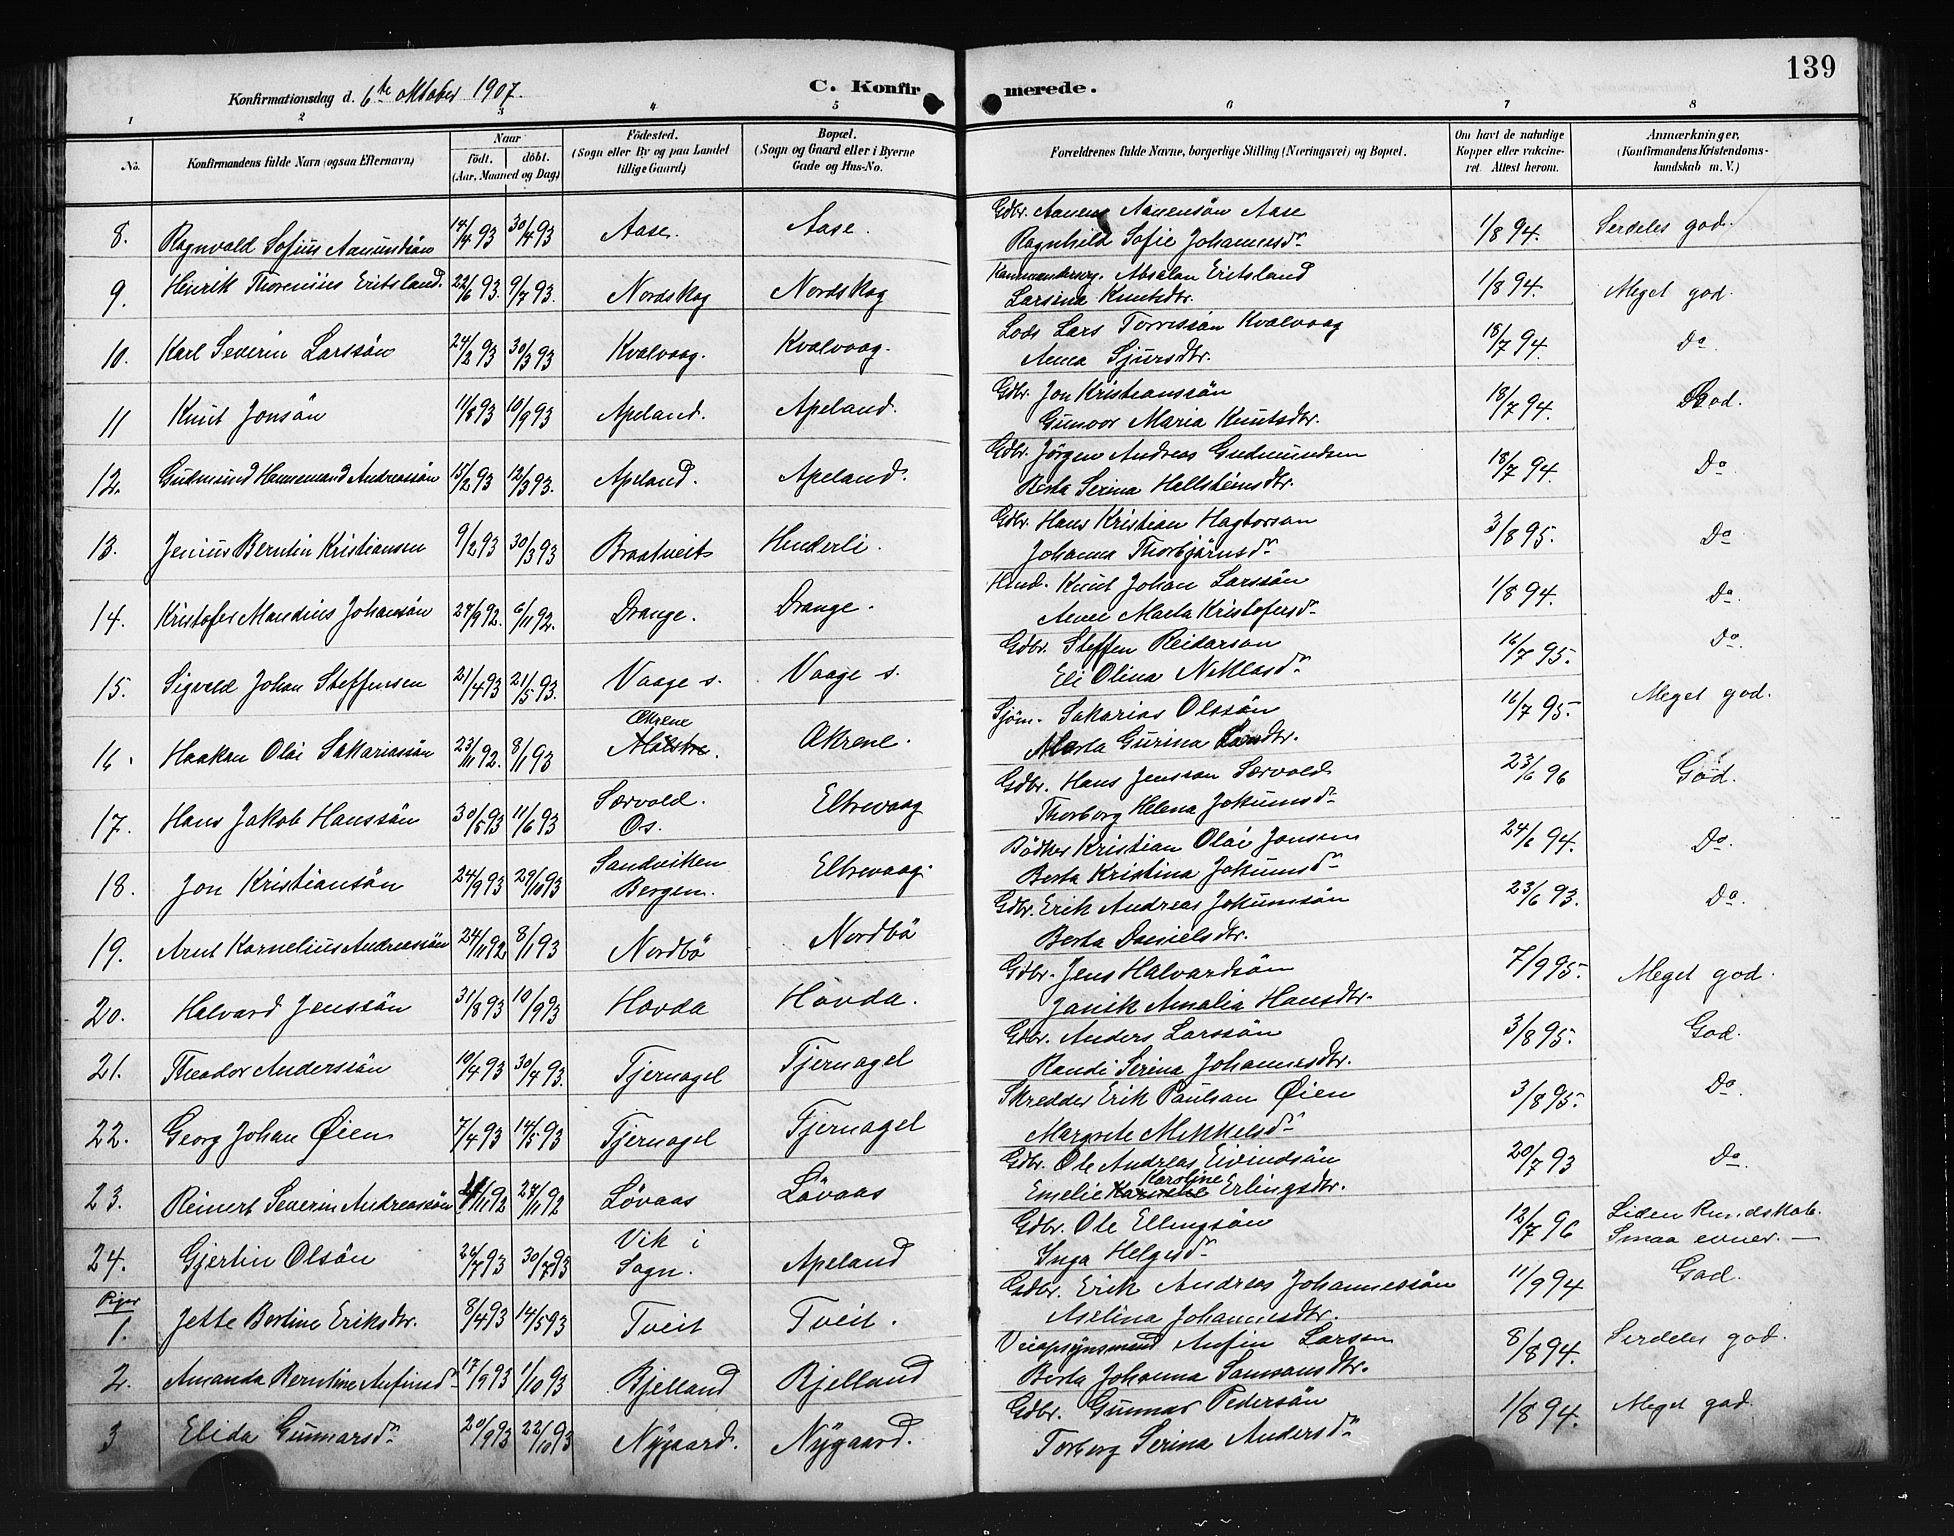 139
Konfirmationsdag d. 6te oktober 1907.
C. Konfirmerede.
1 2 3 4 5 6 7 8
No.
Konfirmandens fulde Navn (ogsaa Efternavn)
Naar
født. døbt.
(Aar, Maaned og Dag)
Fødested.
(Sogn eller By og paa Landet
tillige Gaard)
Bopæl.
(Sogn og Gaard eller i Byerne
Gade og Hus-No.
Forældrenes fulde Navne, borgerlige Stilling (Næringsvei) og Bopæl.
Om havt de naturlige
Kopper eller vakcine-
ret. Attest herom.
Anmærkninger,
(Konfirmandens Kristendoms-
kundskab m. V.)
8. Ragnvald Sofius Aamundsön 14/4 93 30/4 93 Aase. Aase.
Gdbr. Aanen Aanensön Aase
Ragnhild Sofie Johannesdr 1/8 94. Serdeles god.
9. Henrik Thorenius Eritsland. 22/6 93. 9/7 93. Nordskog Nordskog
Absalon Eritsland
Larsina Knutsdtr. 1/8 94. Meget god.
10. Karl Severin Larssön 24/2 93 30/3 93 Kvalvaag. Kvalvaag.
Lods Lars Torressön Kvalvaag
Anna Sjursdtr. 18/7 94. Do.
11 Knut Jonsön 11/8 93 10/9 93 Apeland. Apeland.
Gdbr. Jon Kristianssön
Gunvor Maria Knutsdtr. 18/7 94. God.
12. Gudmund Hannemand Andreassön 15/2 93 12/3 93. Apeland. Apeland.
Gdbr. Jörgen Andreas Gudmundsen
Berta Serina Hallsteinsdtr. 18/7 94. Do
13. Jenius Berntin Kristiansen 9/2 93 30/3 93 Braatveit Henderli.
Gdbr. Hans Kristian Hagborson
Johanna Thorbjörnsdr 3/8 95. Do
14. Kristofer Mandius Johansön 24/9 92. 6/11 92. Drange. Drange.
Knut Johan Larssön
Anne Marta Kristofersdr 1/8 94. Do.
15. Sigvald Johan Steffensen 21/4 93 21/5 93. Vaage s. Vaage s.
Gdbr. Steffen Reidarson
Eli Olina Niklasdr 16/7 95. Do.
16. Haakon Olai Sakariassön 23/11 92. 8/1 93 Økrene Økrene.
Sjöm. Sakarias Olssön
Marta Gurina Larsdtr. 16/7 95. Meget god.
17. Hans Jakob Hanssön 30/5 93 11/6 93 Særvold. Os. Eltrevaag
Gdbr. Hans Jensson Særvold
Thorborg Helena Jokumsdr 23/6 96 God.
18. Jon Kristiansön 24/9 93 29/10 93 Sandviken Bergen. Eltrevaag.
Bödker Kristian Olai Jonsen
Berta Kristina Jokumsdr 24/6 94. Do.
19. Arnt Kornelius Andreassön 24/11 92 8/1 93 Nordbö Nordbö
Gdbr. Erik Andreas Jokumsön
Berta Danielsdtr. 23/6 93. Do.
20. Halvard Jenssön 31/8 93 10/9 93 Hovda Hovda.
Gdbr. Jens Halvardsön
Janik Amalia Hansdtr. 7/9 95. Meget god.
21. Theodor Anderssön 10/4 93 30/4 93. Tjernagel Tjernagel
Gdbr. Anders Larssön
Randi Serina Johannesdtr. 3/8 95. God.
22. Georg Johan Øien 7/4 93 14/5 93 Tjernagel Tjernagel
Skredder Erik Paulson Øien
Margrete Mikkelsdr 3/8 95. Do.
23. Reinert Severin Andreassön 27/11 92 Lövaas Lövaas
Gdbr. Ole Andreas Eivindsön
Emelie Karoline Erlingsdtr. 20/7 93 Do.
24. Gjertin Olsön 26/7 93 30/7 93 Vik i Sogn. Apeland
Gdbr. Ole Ellingsön
Inga Helgesdr 12/7 96 Liden kundskab.
Smaa evner. —
Piger
1. Jette Bertine Eriksdtr. 8/4 93 14/5 93 Tveit Tveit.
Gdbr. Erik Andreas Johannessön
Aselina Johannesdtr. 11/9 94 God.
2. Amanda Berntine Anfinsdr 17/9 93 1/10 93 Bjelland Bjelland
Veiopsynsmand Anfin Larsen
Berta Johanna Samsonsdtr. 8/8 94. Serdeles god.
3 Elida Gunnarsdr 20/9 93 22/10 93 Nygaard. Nygaard.
Gdbr. Gunnar Pedersön
Torborg Serina Andersdr 1/8 94. Meget god.